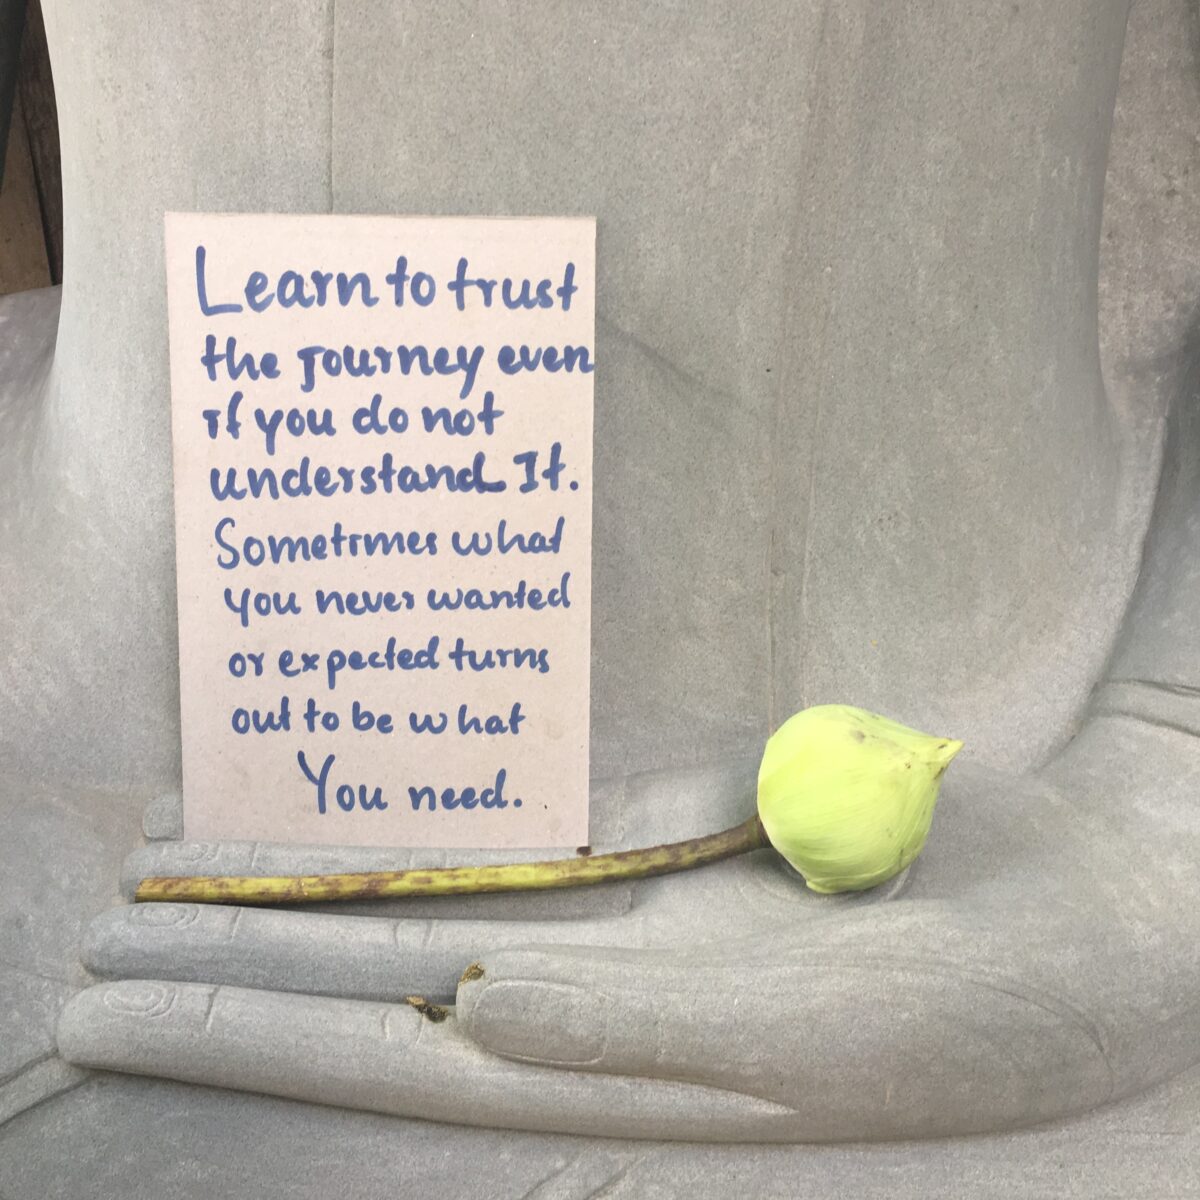 Learn to trust
the journey even
if you do not
understand It.
Sometimes what
you never wanted
or expected turns
out to be what
You need.